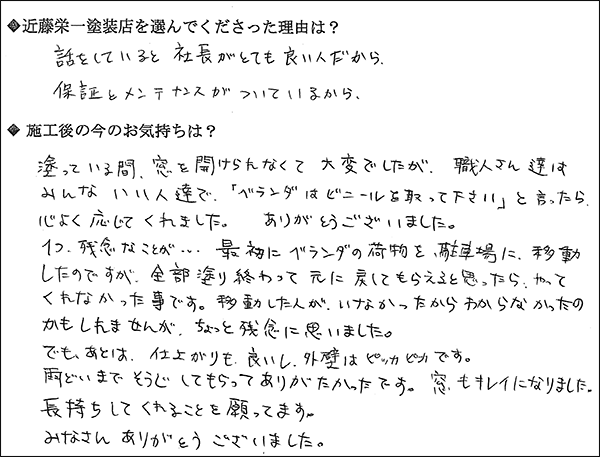 ◆近藤栄一塗装店を選んでくださった理由は?
話をしていると 社長がとても良い人だから.
保証とメンテナンスがついているから、
◆ 施工後の今のお気持ちは?
塗っている間、窓を開けられなくて 大変でしたが、 職人さん達は
みんな いい人達で、「ベランダはビニールを取って下さい」と言ったら、
心よく応じて くれました。 ありがとうございました。
1つ、残念なことが… 最初に ベランダの荷物を、駐車場に、移動
したのですが、全部塗り終わって 元に戻してもらえると思ったら、やって
くれなかった事です。移動した人が、いなかったからわからなかったの
かもしれませんが、ちょっと残念に思いました。
でも、あとは、仕上がりも、良いし、外壁はピッカピカです。
雨どいまで そうじしてもらってありがたかったです。窓、もキレイになりました。
長持ちしてくれることを願ってます。
みなさん ありがとう ございました。